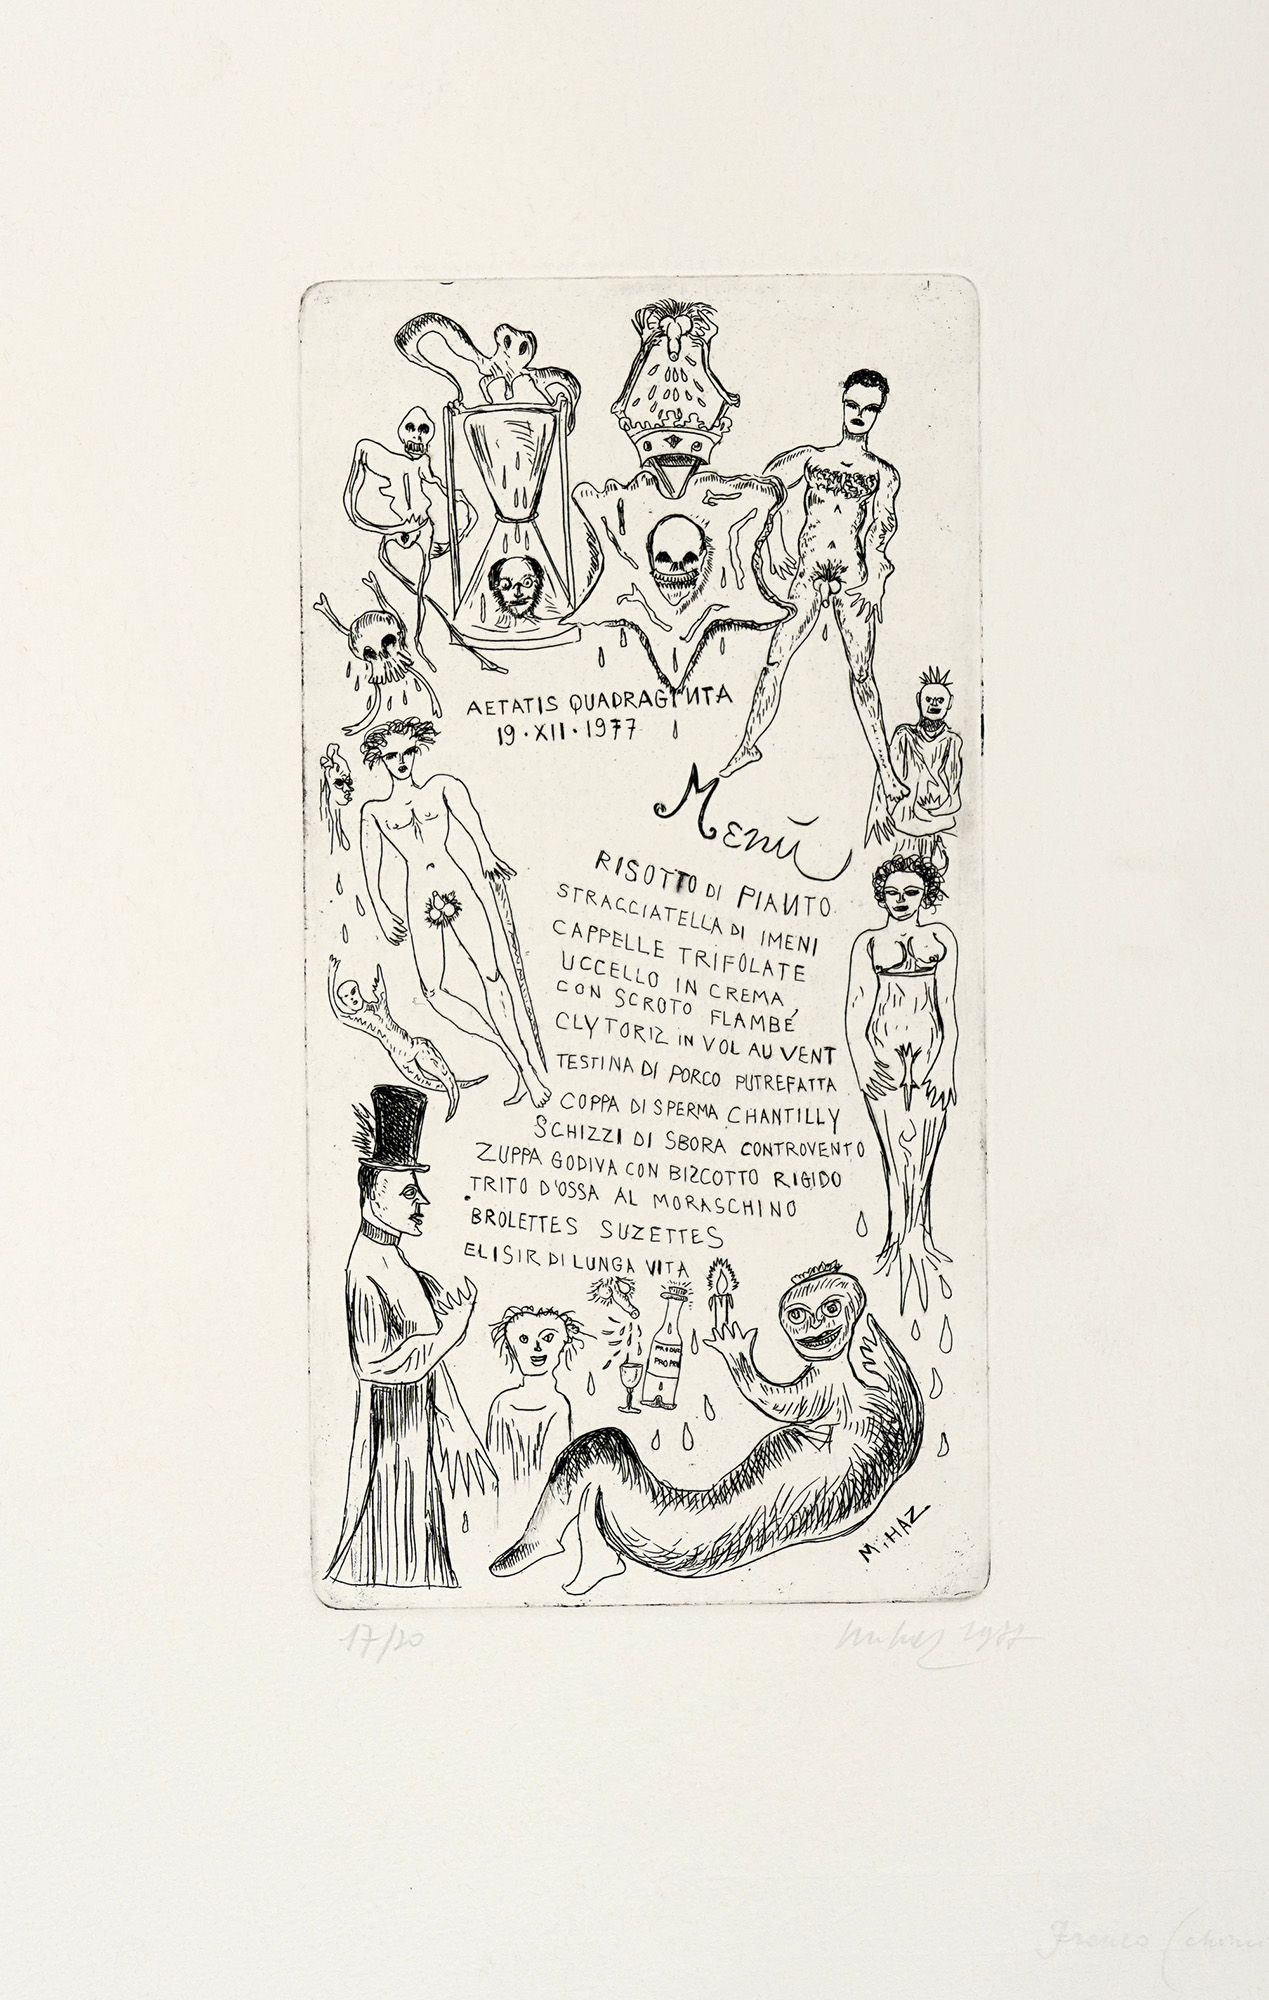 AETATIS QUADRAGINTA
19·XII·1977
Menŭ
RISOTTO DI PIANTO
STRACCIATELLA DI IMENI
CAPPELLE TRIFOLATE
UCCELLO IN CREMA
CON SCROTO FLAMBÉ
CLYTORIZ in VOL AU VENT
TESTINA DI PORCO PUTREFATTA
COPPA DI SPERMA CHANTILLY
SCHIZZI DI SBORA CONTROVENTO
ZUPPA GODIVA CON BIZCOTTO RIGIDO
TRITO D'OSSA AL MORASCHINO
BROLETTES SUZETTES
ELISIR DI LUNGA VITA
M. HAZ
17/20
1977
Franco